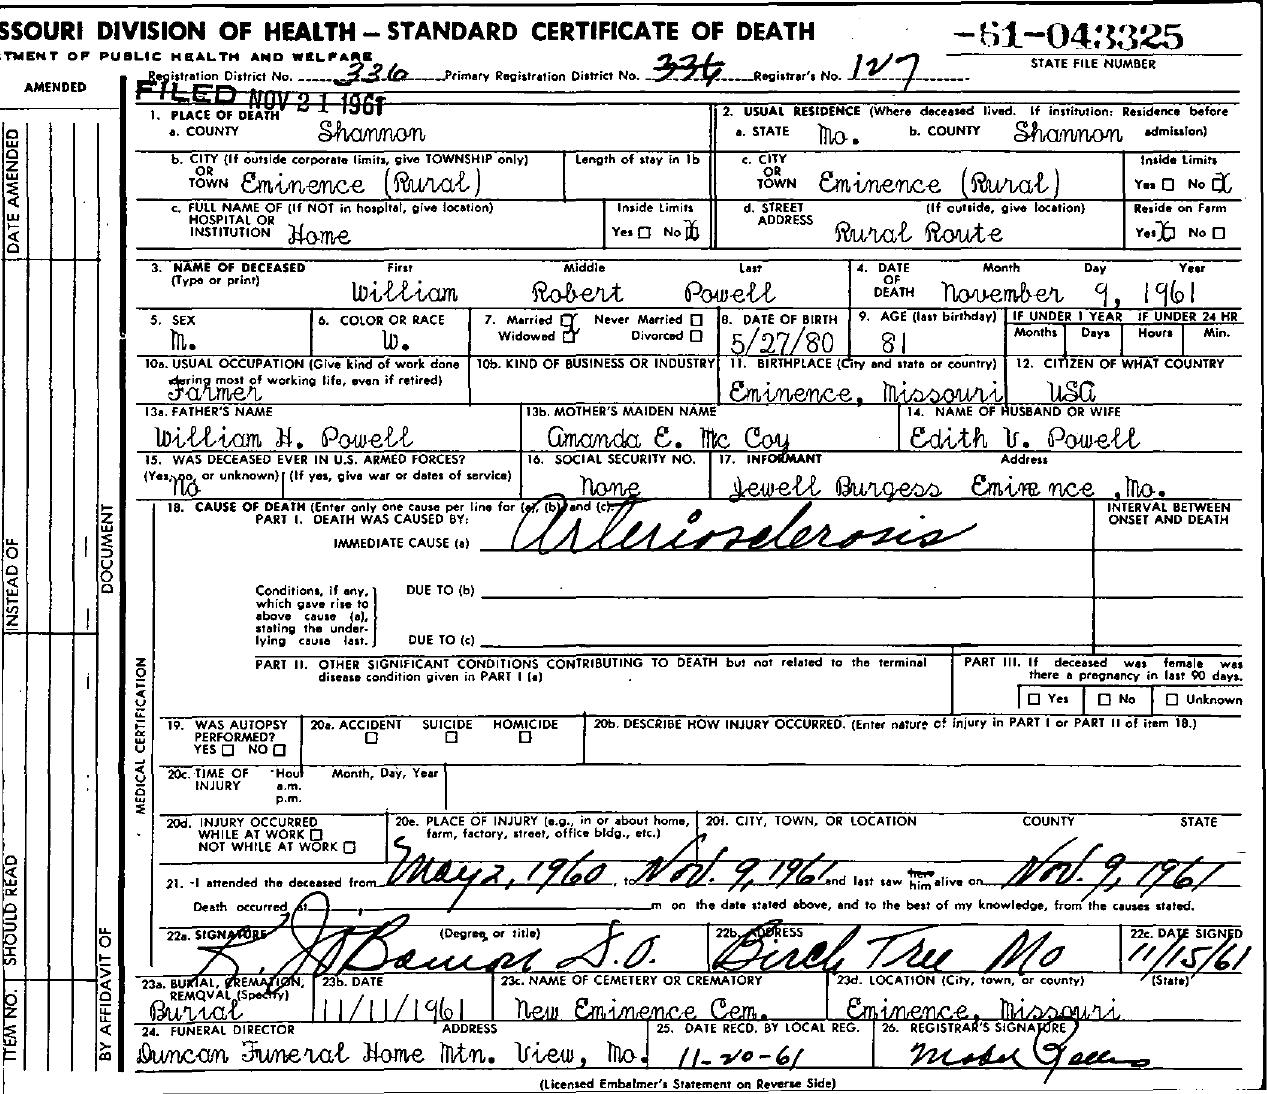 SSOURI DIVISION OF HEALTH — STANDARD CERTIFICATE OF DEATH
-61-043325
TMENT OF PUBLIC HEALTH AND WELFARE
STATE FILE NUMBER
Registration District No. 336 Primary Registration District No. 336 Registrar's No. 127
AMENDED
FILED NOV 21 1961
1. PLACE OF DEATH
a. COUNTY Shannon
2. USUAL RESIDENCE (Where deceased lived. If institution: Residence before admission)
a. STATE Mo. b. COUNTY Shannon
b. CITY (If outside corporate limits, give TOWNSHIP only)
OR
TOWN Eminence (Rural)
Length of stay in 1b
c. CITY
OR
TOWN Eminence (Rural)
Inside Limits
Yes □ No X
c. FULL NAME OF (If NOT in hospital, give location)
HOSPITAL OR
INSTITUTION Home
Inside Limits
Yes □ No X
d. STREET ADDRESS (If outside, give location)
Rural Route
Reside on Farm
Yes X No □
3. NAME OF DECEASED
(Type or print)
First Middle Last
William Robert Powell
4. DATE OF DEATH
Month Day Year
November 9, 1961
5. SEX
M.
6. COLOR OR RACE
W.
7. Married □ Never Married □
Widowed □ Divorced □
8. DATE OF BIRTH
5/27/80
9. AGE (last birthday)
81
IF UNDER 1 YEAR
Months Days
IF UNDER 24 HR
Hours Min.
10a. USUAL OCCUPATION (Give kind of work done
during most of working life, even if retired)
Farmer
10b. KIND OF BUSINESS OR INDUSTRY
11. BIRTHPLACE (City and state or country)
Eminence, Missouri
12. CITIZEN OF WHAT COUNTRY
USA
13a. FATHER'S NAME
William H. Powell
13b. MOTHER'S MAIDEN NAME
Amanda E. Mc Coy
14. NAME OF HUSBAND OR WIFE
Edith V. Powell
15. WAS DECEASED EVER IN U.S. ARMED FORCES?
(Yes, no, or unknown) (If yes, give war or dates of service)
No
16. SOCIAL SECURITY NO.
None
17. INFORMANT Address
Jewell Burgess Eminence, Mo.
18. CAUSE OF DEATH (Enter only one cause per line for (a), (b) and (c).
PART I. DEATH WAS CAUSED BY:
IMMEDIATE CAUSE (a) Arteriosclerosis
INTERVAL BETWEEN
ONSET AND DEATH
Conditions, if any,
which gave rise to
above cause (a),
stating the under-
lying cause last.
DUE TO (b)
DUE TO (c)
PART II. OTHER SIGNIFICANT CONDITIONS CONTRIBUTING TO DEATH but not related to the terminal
disease condition given in PART I (a)
PART III. If deceased was female was
there a pregnancy in last 90 days.
□ Yes □ No □ Unknown
19. WAS AUTOPSY
PERFORMED?
YES □ NO □
20a. ACCIDENT SUICIDE HOMICIDE
20b. DESCRIBE HOW INJURY OCCURRED. (Enter nature of injury in PART I or PART II of item 18.)
20c. TIME OF INJURY
Hour Month, Day, Year
a.m.
p.m.
20d. INJURY OCCURRED
WHILE AT WORK □
NOT WHILE AT WORK □
20e. PLACE OF INJURY (e.g., in or about home,
farm, factory, street, office bldg., etc.)
20f. CITY, TOWN, OR LOCATION COUNTY STATE
21. I attended the deceased from May 2, 1960, to Nov. 9, 1961 and last saw him alive on Nov. 9, 1961
Death occurred at m on the date stated above, and to the best of my knowledge, from the causes stated.
22a. SIGNATURE (Degree, or title)
D.O.
22b. ADDRESS
Birch Tree Mo
22c. DATE SIGNED
11/15/61
23a. BURIAL, CREMATION,
REMOVAL (Specify)
Burial
23b. DATE
11/11/1961
23c. NAME OF CEMETERY OR CREMATORY
New Eminence Cem.
23d. LOCATION (City, town, or county) (State)
Eminence, Missouri
24. FUNERAL DIRECTOR ADDRESS
Duncan Funeral Home Mtn. View, Mo.
25. DATE RECD. BY LOCAL REG.
11-20-61
26. REGISTRAR'S SIGNATURE
Mabel
(Licensed Embalmer's Statement on Reverse Side)
DATE AMENDED
INSTEAD OF
DOCUMENT
MEDICAL CERTIFICATION
ITEM NO. SHOULD READ
BY AFFIDAVIT OF